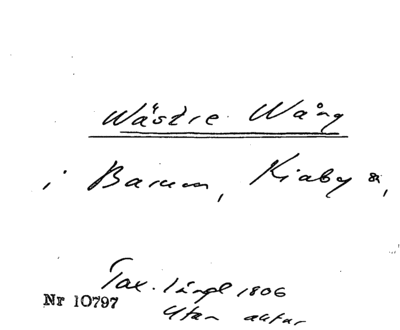 Wästre Wång
i Barum, Kiaby s,
Tax. längd 1806
Nr 10797
utan aktnr